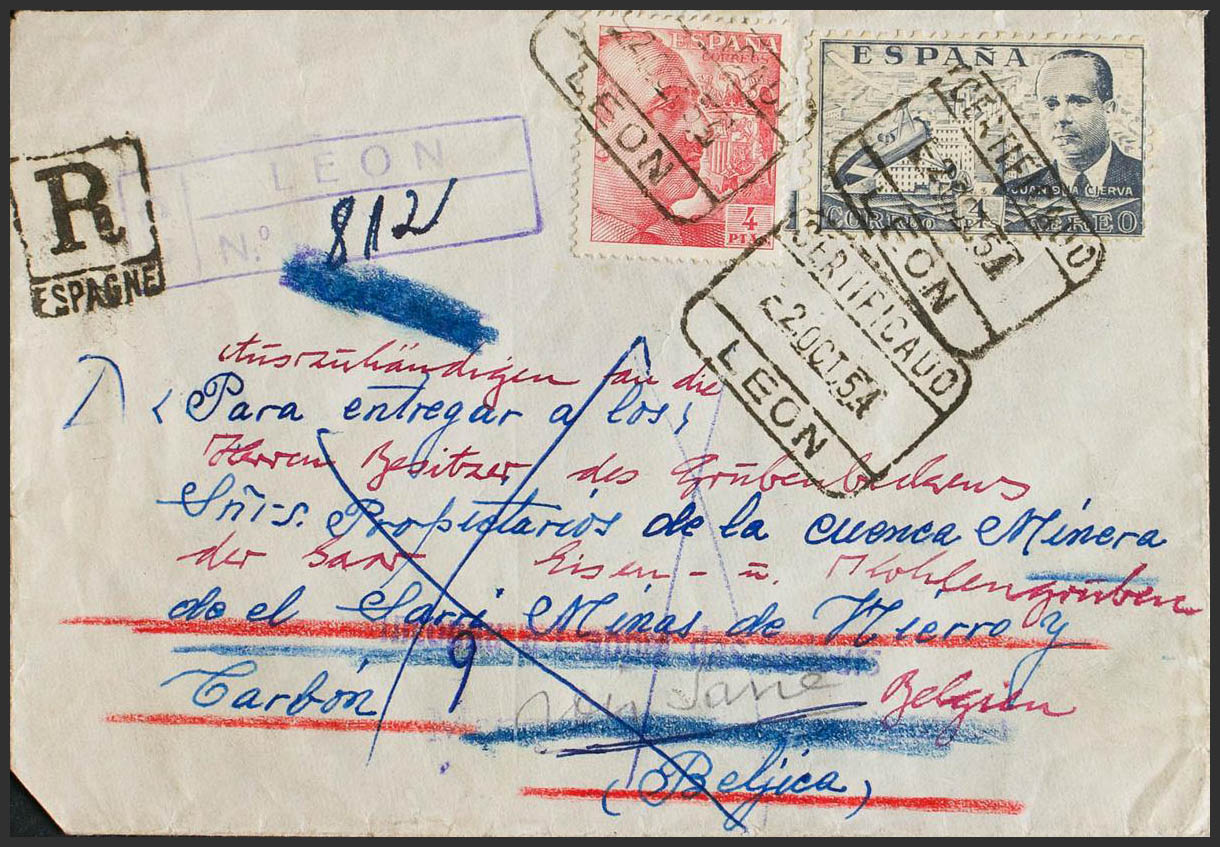 ESPAÑA
CORREOS
4
PTS
ESPAÑA
JUAN DE LA CIERVA
CORREO AEREO
CERTIFICADO
LEON
LEON
CERTIFICADO
-2.OCT.54
LEON
R
ESPAGNE
LEON
N.º
812
Auszuhändigen an die
Para entregar a los
Herren Besitzer des Grubenbeckens
Sñrs. Propietarios de la cuenca Minera
der Saar Eisen- u. Kohlengruben
de el Sarri Minas de Hierro y
9
Carbón
Belgien
(Beljica)